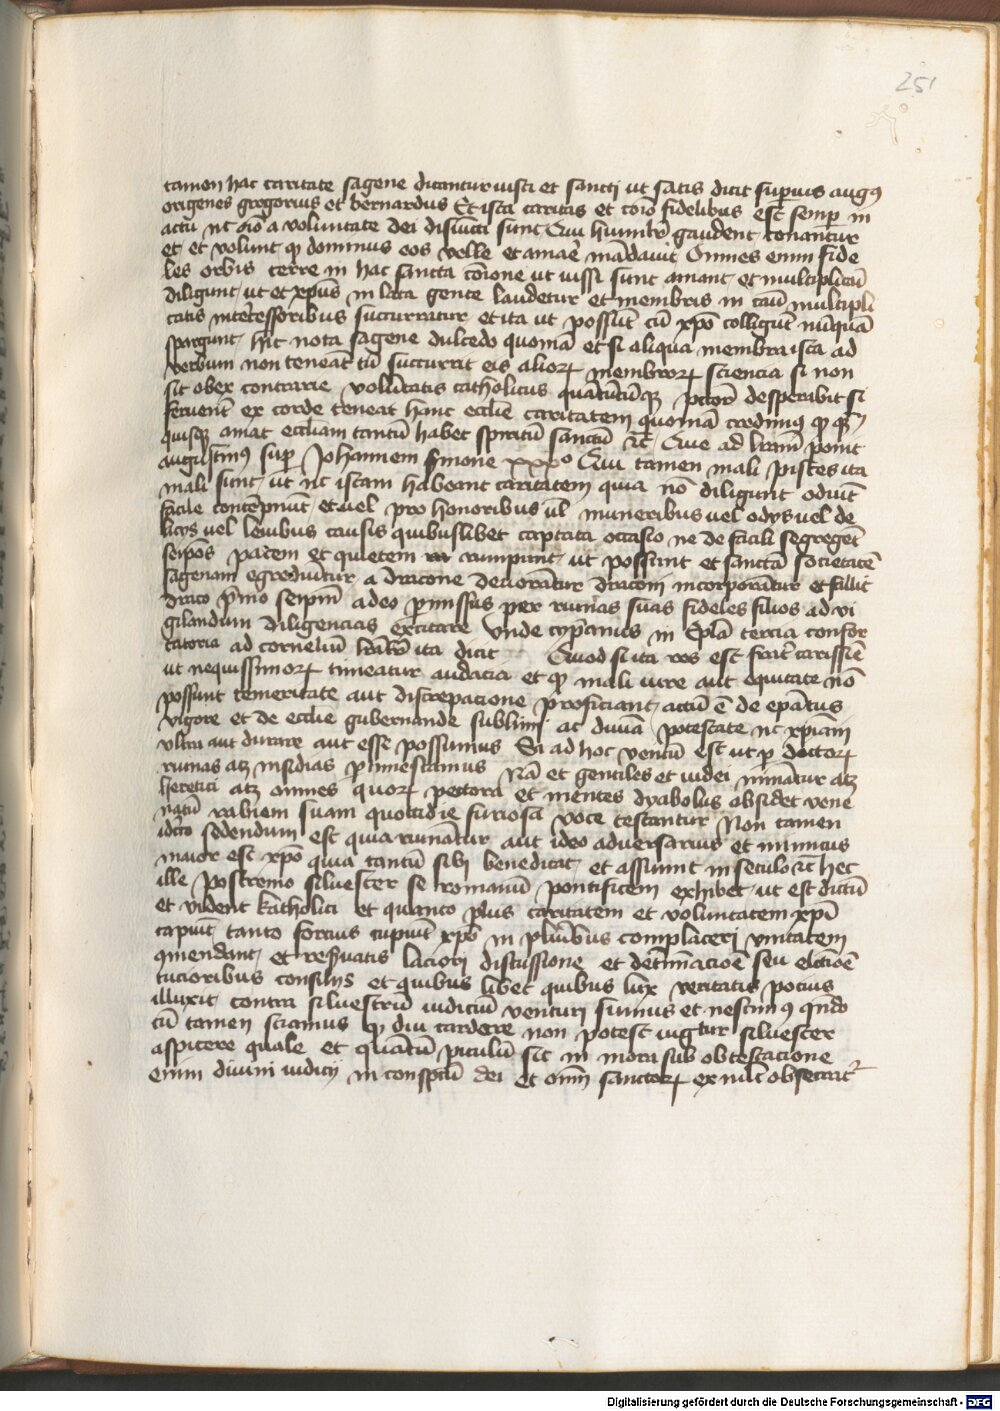 251
tamen hac caritate sagene dicantur iusti et sancti ut satis dicit superius augus
origenes gregorius et bernardus Et ista caritas et cōīo fidelibus est semp in
actu nc oīo a voluntate dei disiūcti sunt Qui humilr gaudent conantur
et et volunt qp dominus eos velle et amare mādavit Omnes enim fide
les orbis terre in hac sancta cōione ut iussi sunt amant et multipliciū
diligunt ut et xpus in lata gente laudetur et membris in tau multipli
catis intercessoribus succurratur et ita ut possūt cū xpo colligūt nūquā
spargunt hic nota sagene dulcedo quoniam et si aliqua membra ista ad
verbum non teneāt tū succurrit eis alioꝝ membroꝝ sciencia si non
sit obex contrarie voluntatis catholicus quātūcūqꝫ pctor desperabit si
fecuerit ex corde teneat hanc ecclie caritatem quoniam credimus qp
quisqꝫ amat eccliam tantū habet spiritū sanctū ꝛc Que ad lram ponit
augustinus sup Johannem sermone xxx⁰ Qui tamen mali pisces ita
mali sunt ut nc istam habeant caritatem quia nō diligunt odiūt
facile contēpnūt et uel pro honoribus ul muneribus uel odys uel de
licys uel lenibus causis quibuslibet captata occasio ne de facili segregēt
seipos pacem et quietem rumpunt ut possunt et sanctā societatē
sagenam egrediūtur a dracone deuorātur draconi incorporātur et fallit
draco pmo seipm adeo pmissus per ruinas suas fideles filios ad vi
gilandum diligencias excitare Unde cyprianus in Epla tercia confor
tatoria ad corneliū ita dicit Quod si ita res est frater carissīe
ut nequissimoꝝ timeatur audacia et qp mali iure aut equitate nō
possunt temeritate aut discrepacione proficiant actū ē de epātus
vigore et de ecclie gubernande sublimi ac diuīa potestate nc xpiani
ultra aut durare aut esse possumus Si ad hoc ventū est ut p doctoꝝ
ruinas atqꝫ insidias ptimescamus Nā et gentiles et iudei minātur atqꝫ
heretici atqꝫ omnes quoꝝ pectora et mentes dyabolus obsidet vene
natū rabiem suam quottidie furiosa voce testantur Non tamen
idcirco cedendum est quia minātur aut ideo adversarius et inimicus
maior est xpo quia tantū sibi vendicat et assumit in seculo ꝛc hec
ille Postremo siluester se romanū pontificem exhibet ut est dictū
et vident katholici et quanto plus caritatem et voluntatem xpi
capiūt tanto forcius cupiūt xpo in pluribus complacerj unitatem
qmendant et reseruatis laciori discussione et detminacioē seu elctioē
tucioribus consilys et quibus libet quibus lux veritatis pocius
illuxit contra siluestrū iudiciū venturi sumus et nescimus quādo
cū tamen sciamus qp diu tardere non potest iugitur siluester
aspicere quale et quātū piculū sit in mora sub obtestacione
enim divini iudicij in conspectu dei et omī sanctoꝝ ex nūc obsecrat
Digitalisierung gefördert durch die Deutsche Forschungsgemeinschaft - DFG